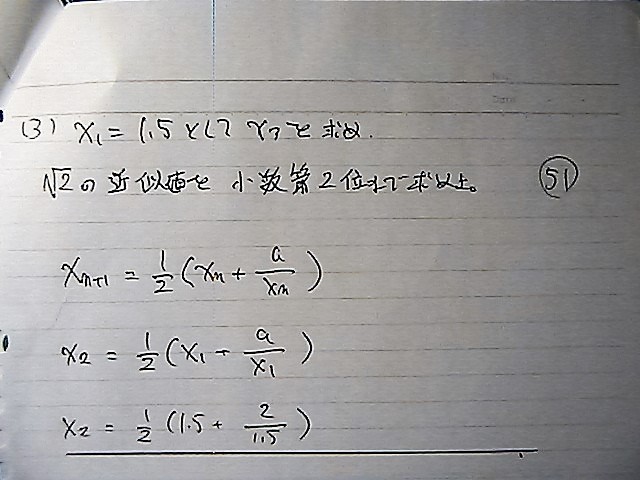 (3) x₁ = 1.5 として x₃を求め.
√2の近似値を 小数第2位まで求めよ。 51
xₙ₊₁ = 1/2 (xₙ + a/xₙ)
x₂ = 1/2 (x₁ + a/x₁)
x₂ = 1/2 (1.5 + 2/1.5)